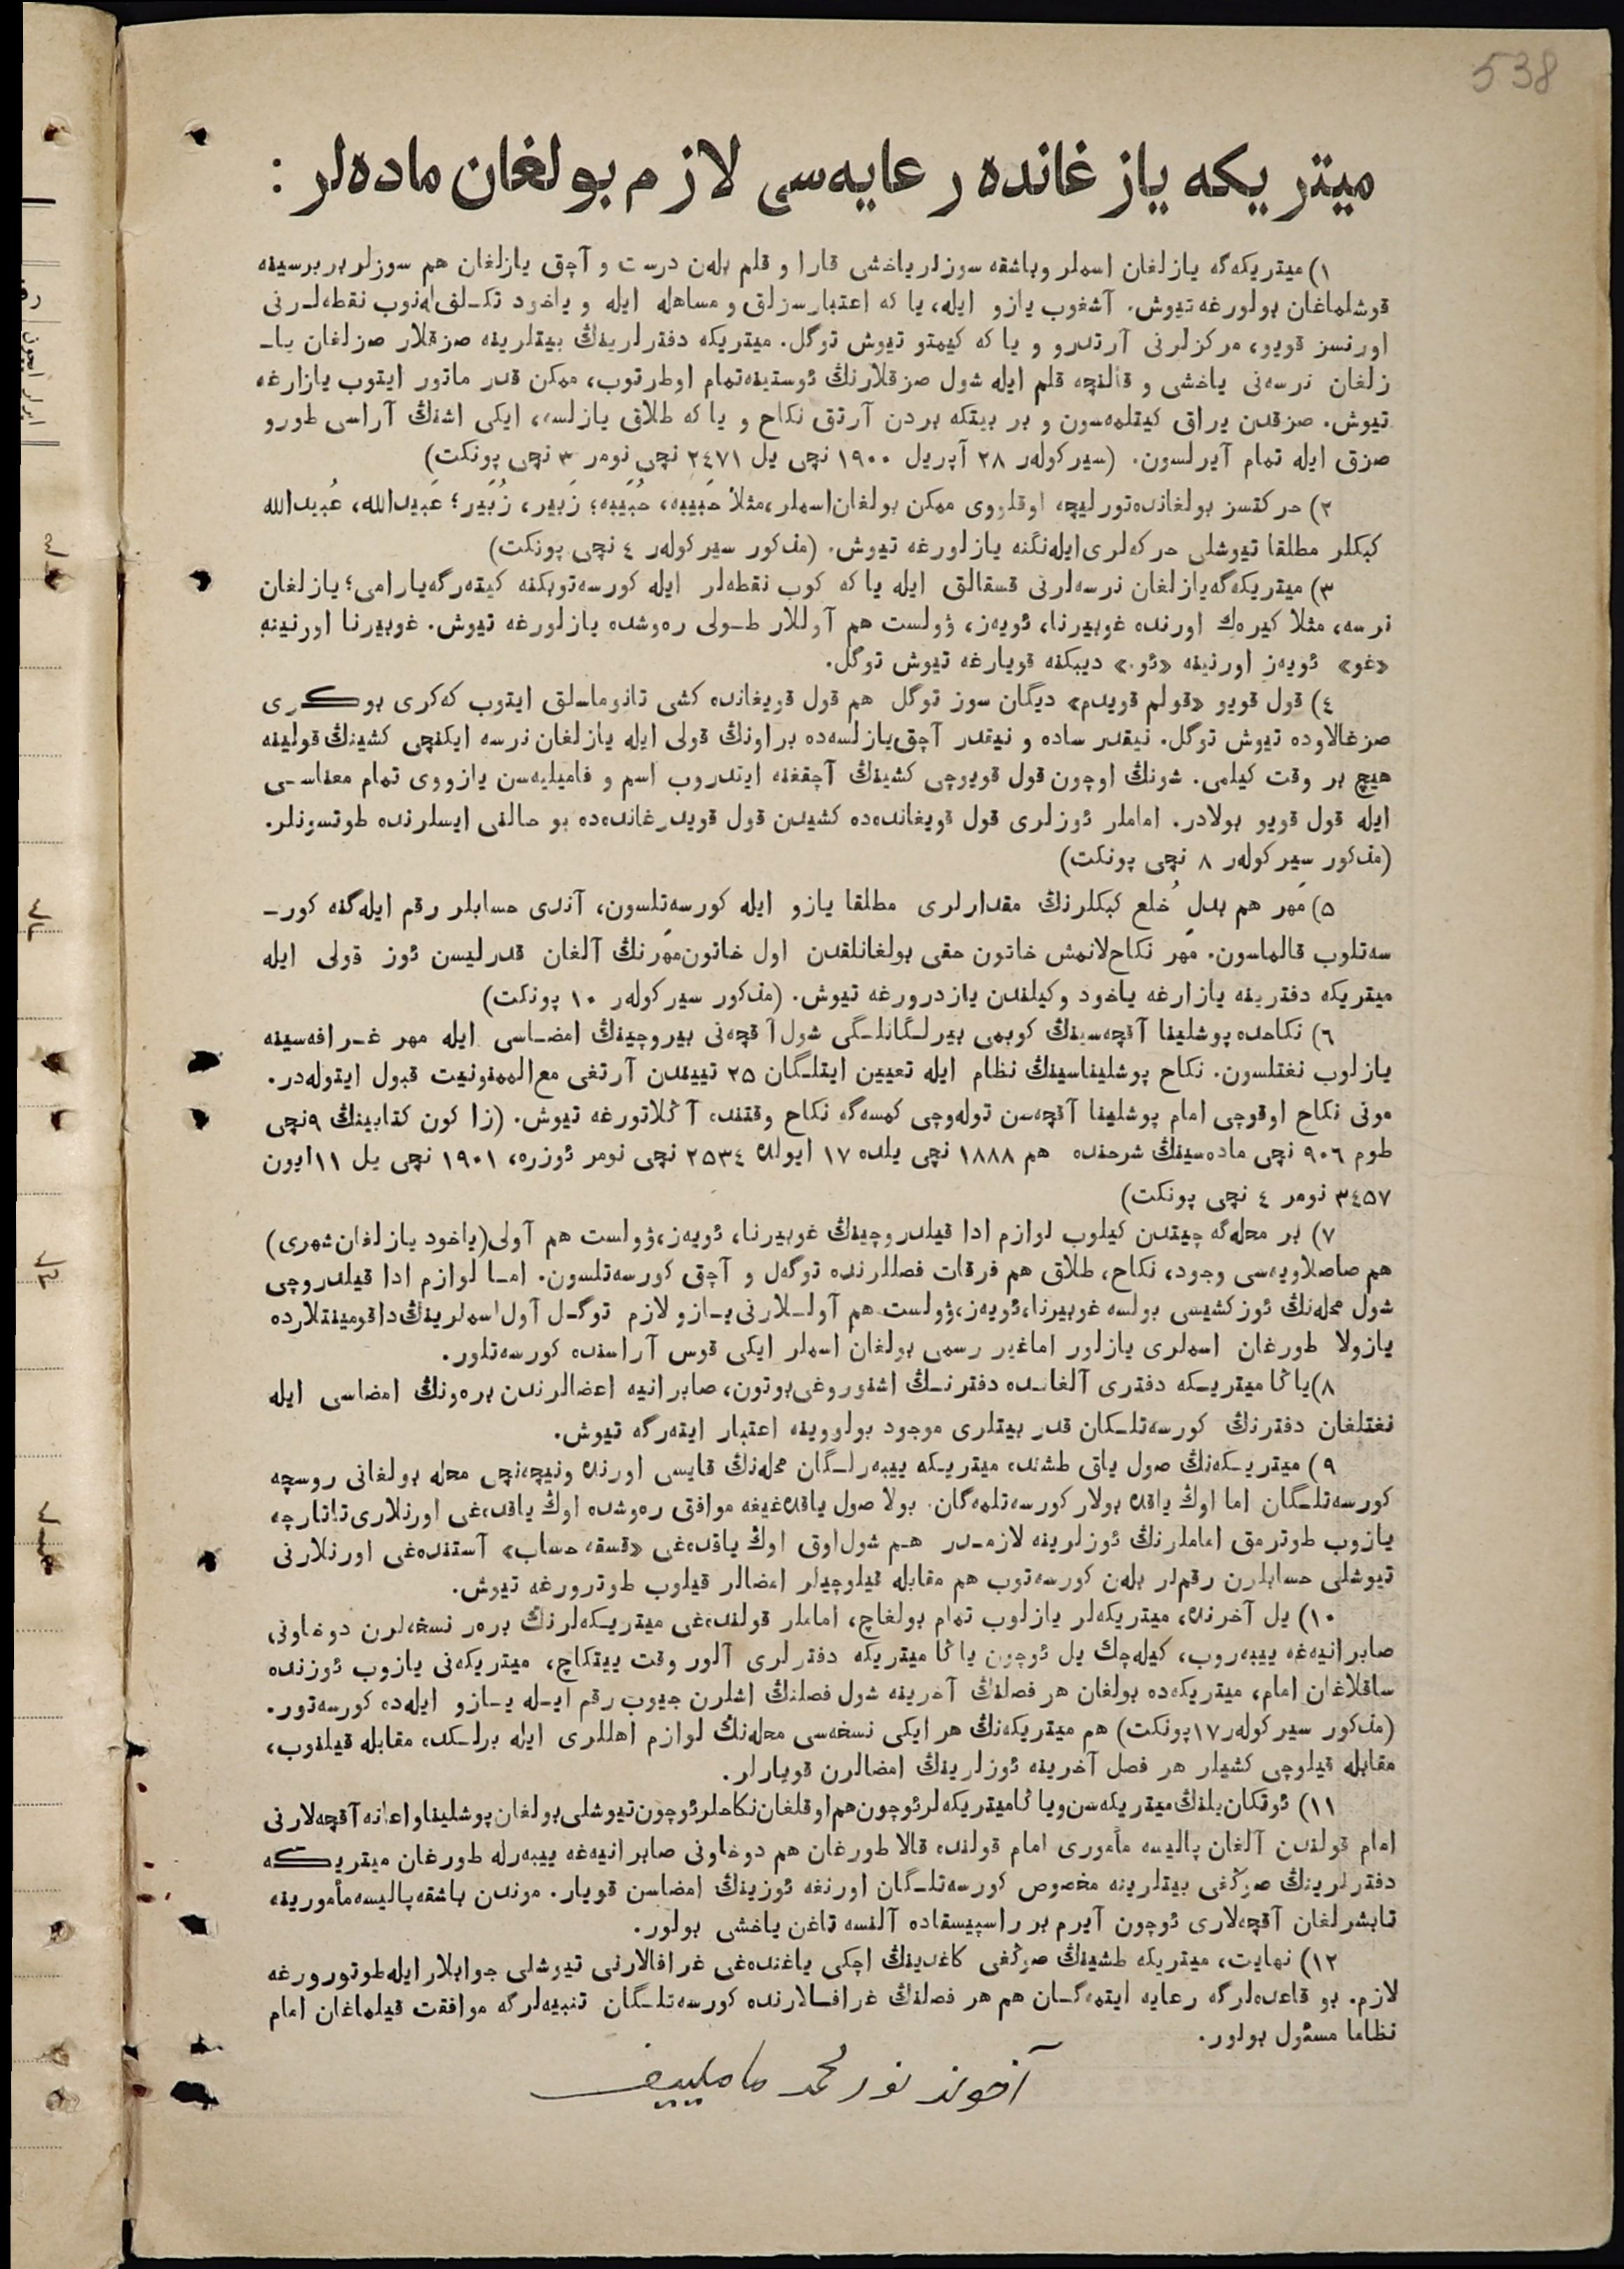 538
ميتريكه يازغانده رعايه‌سى لازم بولغان ماده‌لر :
١) ميتريكه‌گه يازلغان اسملر وباشقه سوزلرياخشى قارا و قلم بلەن درست و آچق يازلغان هم سوزلر بربرسينه
قوشلماغان بولورغه تيوش. آشغوب يازو ايله، يا كه اعتبارسزلق و مساهله ايله و ياخود تكـلفله‌نوب نقطه‌لـرنى
اورنسز قويو، مركزلرنى آرتدرو و يا كه كيمتو تيوش توگل. ميتريكه دفترلرينڭ بيتلرينه صزقلار صزلغان يا‌ـ
زلغان نرسه‌نى ياخشى و قالنچه قلم ايله شول صزقلارنڭ ئوستينه‌تمام اوطرتوب، ممكن قدر ماتور ايتوب يازارغه
تيوش. صزقدن يراق كيتلمه‌سون و بر بيتكه بردن آرتق نكاح و يا كه طلاق يازلسه، ايكى اشنڭ آراسى طورو
صزق ايله تمام آيرلسون. (سيركولەر ٢٨ آپريل ١٩٠٠ نچى يل ٢٤٧١ نچى نومر ٣ نچى پونكت)
٢) حركتسز بولغانده‌تورليچه اوقلووى ممكن بولغان‌اسملر،مثلا حَبيبه، حُبيبه؛ زَبير، زُبَير؛ عَبيدالله، عُبيدالله
كبكلر مطلقا تيوشلى حركه‌لرى‌ايله‌نگنه يازلورغه تيوش. (مذكور سيركولەر ٤ نچى پونكت)
٣) ميتريكه‌گه‌يازلغان نرسه‌لرنى قسقالق ايله يا كه كوب نقطه‌لر ايله كورسه‌توبكنه كيته‌رگه‌يارامى؛ يازلغان
نرسه، مثلا كيره‌ك اورنده غوبيرنا، ئويەز، ۋولست هم آوللار طـولى ره‌وشده يازلورغه تيوش. غوبيرنا اورنينه
«غو» ئويەز اورنينه «ئو.» ديبكنه قويارغه تيوش توگل.
٤) قول قويو «قولم قويدم» ديگان سوز توگل هم قول قويغانده كشى تانوماسلق ايتوب كه‌كرى بوكـرى
صزغالاوده تيوش توگل. نيقدر ساده و نيقدر آچق‌يازلسه‌ده براونڭ قولى ايله يازلغان نرسه ايكنچى كشينڭ قولينه
هيچ بر وقت كيلمى. شونڭ اوچون قول قويوچى كشينڭ آچقغنه ايتدروب اسم و فاميليه‌سن يازووى تمام معناسـى
ايله قول قويو بولادر. اماملر ئوزلرى قول قويغانده‌ده كشيدن قول قويدرغانده‌ده بو حالنى ايسلرنده طوتسونلر.
(مذكور سيركولەر ٨ نچى پونكت)
٥) مَهر هم بدلِ خُلع كبكلرنڭ مقدارلرى مطلقا يازو ايله كورسه‌تلسون، آندى حسابلر رقم ايله‌گنه كور‌ـ
سه‌تلوب قالماسون. مَهر نكاح‌لانمش خاتون حقى بولغانلقدن اول خاتون‌مَهرنڭ آلغان قدرليسن ئوز قولى ايله
ميتريكه دفترينه يازارغه ياخود وكيلندن يازدرورغه تيوش. (مذكور سيركولەر ١٠ پونكت)
٦) نكاحده پوشلينا آقچه‌سينڭ كوبمى بيرلـگانلـگى شول آقچه‌نى بيروچينڭ امضـاسى ايله مهر غـرافه‌سينه
يازلوب نغتلسون. نكاح پوشليناسينڭ نظام ايله تعيين ايتلـگان ٢٥ تييندن آرتغى مع‌الممنونيت قبول ايتوله‌در.
مونى نكاح اوقوچى امام پوشلينا آقچه‌سن توله‌وچى كمسه‌گه نكاح وقتنده آڭلاتورغه تيوش. (زا كون كتابينڭ ٩نچى
طوم ٩٠٦ نچى ماده‌سينڭ شرحنده هم ١٨٨٨ نچى يلده ١٧ ايولده ٢٥٣٤ نچى نومر ئوزره، ١٩٠١ نچى يل ١١ايون
٣٤٥٧ نومر ٤ نچى پونكت)
٧) بر محله‌گه چيتدن كيلوب لوازم ادا قيلدروچينڭ غوبيرنا، ئويەز،ۋولست هم آولى(ياخود يازلغان‌شهرى)
هم صاصلاويه‌سى وجود، نكاح، طلاق هم فرقات فصللرنده توگه‌ل و آچق كورسه‌تلسون. امـا لوازم ادا قيلدروچى
شول محله‌نڭ ئوزكشيسى بولسه غوبيرنا،ئويەز،ۋولست هم آولـلارنى يـازو لازم توگـل آول اسملرينڭ‌داقومينتلارده
يازولا طورغان اسملرى يازلور اماغير رسمى بولغان اسملر ايكى قوس آراسنده كورسه‌تلور.
٨)ياڭا ميتريـكه دفترى آلغانـده دفترنـڭ اشنوروغى‌بوتون، صابرانيه اعضالرندن بره‌ونڭ امضاسى ايله
نغتلغان دفترنڭ كورسه‌تلـكان قدر بيتلرى موجود بولووينه اعتبار ايته‌رگه تيوش.
٩) ميتريـكه‌نڭ صول ياق طشنده ميتريـكه ييبه‌رلـگان محله‌نڭ قايسى اورنده ونيچه‌نچى محله بولغانى روسچه
كورسه‌تلـگان اما اوڭ ياقده بولار كورسه‌تلمه‌گان. بولا صول ياقده‌غيغه موافق ره‌وشده اوڭ ياقده‌غى اورنلارى‌تاتارچه
يازوب طوترمق اماملرنڭ ئوزلرينه لازم‌ـدر هـم شول‌اوق اوڭ ياقده‌غى «قسقه حساب» آستنده‌غى اورنلارنى
تيوشلى حسابلرن رقم‌لر بلەن كورسه‌توب هم مقابله قيلوچيلر امضالر قيلوب طوترورغه تيوش.
١٠) يل آخرنده، ميتريكه‌لر يازلوب تمام بولغاچ، اماملر قولنده‌غى ميتريـكه‌لرنڭ بره‌ر نسخه‌لرن دوخاونى
صابرانيه‌غه ييبه‌روب، كيله‌چك يل ئوچون ياڭا ميتريكه دفترلرى آلور وقت ييتكاچ، ميتريكه‌نى يازوب ئوزنده
ساقلاغان امام، ميتريكه‌ده بولغان هر فصلنڭ آخرينه شول فصلنڭ اشلرن جيوب رقم ايـله يـازو ايله‌ده كورسه‌تور.
(مذكور سيركولەر ١٧پونكت) هم ميتريكه‌نڭ هر ايكى نسخه‌سى محله‌نڭ لوازم اهللرى ايله برلـكده مقابله قيلنوب،
مقابله قيلوچى كشيلر هر فصل آخرينه ئوزلرينڭ امضالرن قويارلر.
١١) ئوتكان‌يلنڭ‌ميتريكه‌سن‌وياڭاميتريكه‌لرئوچون‌هم‌اوقلغان‌نكاحلرئوچون‌تيوشلى‌بولغان‌پوشليناواعانه‌آقچه‌لارنى
امام قولندن آلغان پاليسه مأمورى امام قولنده قالا طورغان هم دوخاونى صابرانيه‌غه ييبه‌رله طورغان ميتريـكه
دفترلرينڭ صوڭغى بيتلرينه مخصوص كورسه‌تلـگان اورنغه ئوزينڭ امضاسن قويار. موندن باشقه‌پاليسه‌مأمورينه
تابشرلغان آقچه‌لارى ئوچون آيرم بر راسپيسقاده آلنسه تاغن ياخشى بولور.
١٢) نهايت، ميتريكه طشينڭ صوڭغى كاغدينڭ اچكى ياغنده‌غى غرافالارنى تيوشلى جوابلار ايله طوتورورغه
لازم. بو قاعده‌لرگه رعايه ايتمه‌گـان هم هر فصلنڭ غرافـالارنده كورسه‌تلـگان تنبيه‌لرگه موافقت قيلماغان امام
نظاما مسئول بولور.
آخوند نورمحمد ماملييف